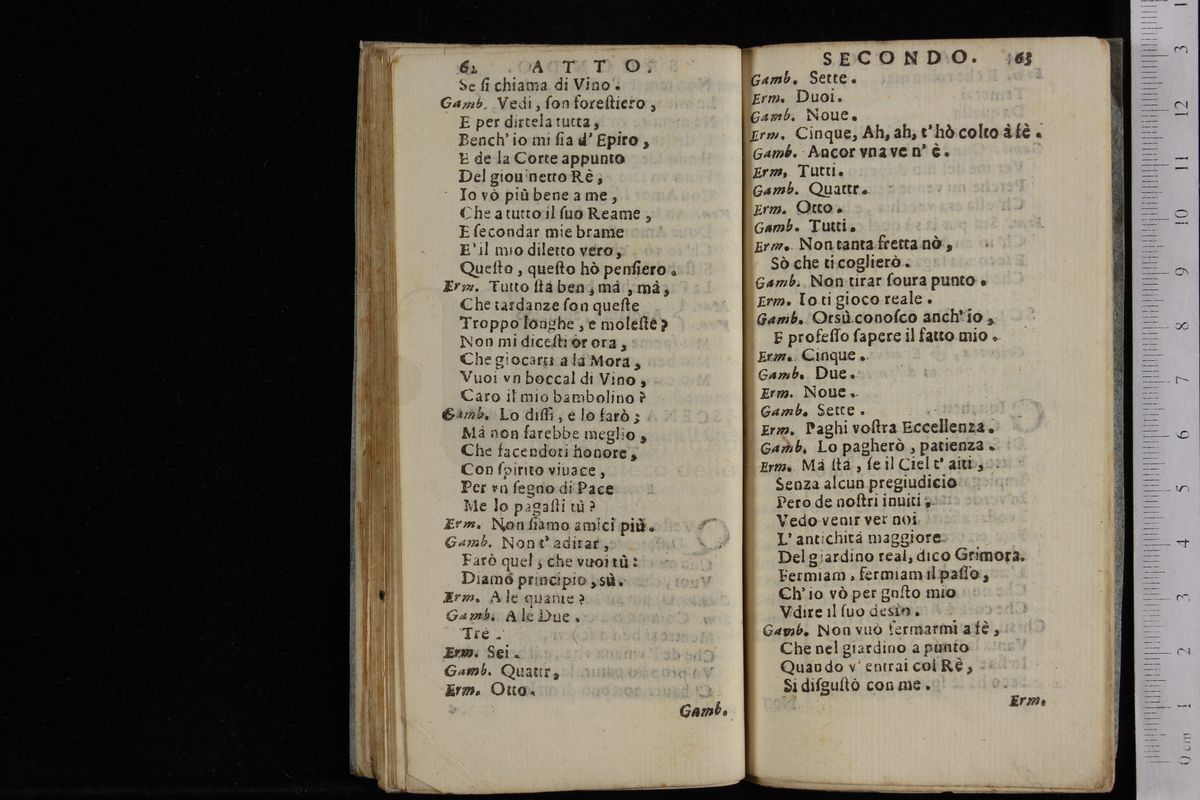 62 ATTO.
Se ſi chiama di Vino.
Gamb. Vedi, ſon foreſtiero,
E per dirtela tutta,
Bench' io mi ſia d' Epiro,
E de la Corte appunto
Del giouinetto Rè,
Io vò più bene a me,
Che a tutto il ſuo Reame,
E ſecondar mie brame
E' il mio diletto vero,
Queſto, queſto hò penſiero.
Erm. Tutto ſtà ben, mà, mà,
Che tardanze ſon queſte
Troppo longhe, e moleſte?
Non mi diceſti or ora,
Che giocarti a la Mora,
Vuoi vn boccal di Vino,
Caro il mio bambolino?
Gamb. Lo diſſi, e lo farò;
Mà non ſarebbe meglio,
Che facendoti honore,
Con ſpirito viuace,
Per vn ſegno di Pace
Me lo pagaſſi tù?
Erm. Non ſiamo amici più.
Gamb. Non t' adirar,
Farò quel, che vuoi tù:
Diamo principio, sù.
Erm. A le quante?
Gamb. A le Due.
Tre.
Erm. Sei.
Gamb. Quattr,
Erm. Otto.
Gamb.
SECONDO. 63
Gamb. Sette.
Erm. Duoi.
Gamb. Noue.
Erm. Cinque, Ah, ah, t' hò colto à fè.
Gamb. Ancor vna ve n' è.
Erm, Tutti.
Gamb. Quattr.
Erm. Otto.
Gamb. Tutti.
Erm. Non tanta fretta nò,
Sò che ti coglierò.
Gamb. Non tirar ſoura punto.
Erm. Io ti gioco reale.
Gamb. Orsù conoſco anch' io,
E profeſſo ſapere il fatto mio.
Erm. Cinque.
Gamb. Due.
Erm. Noue.
Gamb. Sette.
Erm. Paghi voſtra Eccellenza.
Gamb. Lo pagherò, patienza.
Erm. Mà ſtà, ſe il Ciel t' aiti,
Senza alcun pregiudicio
Pero de noſtri inuiti,
Vedo venir ver noi
L' antichità maggiore
Del giardino real, dico Grimora.
Fermiam, fermiam il paſſo,
Ch' io vò per guſto mio
Vdire il ſuo deſio.
Gamb. Non vuò fermarmi a fè,
Che nel giardino a punto
Quando v' entrai col Rè,
Si diſguſtò con me.
Erm.
0 cm 1 2 3 4 5 6 7 8 9 10 11 12 13